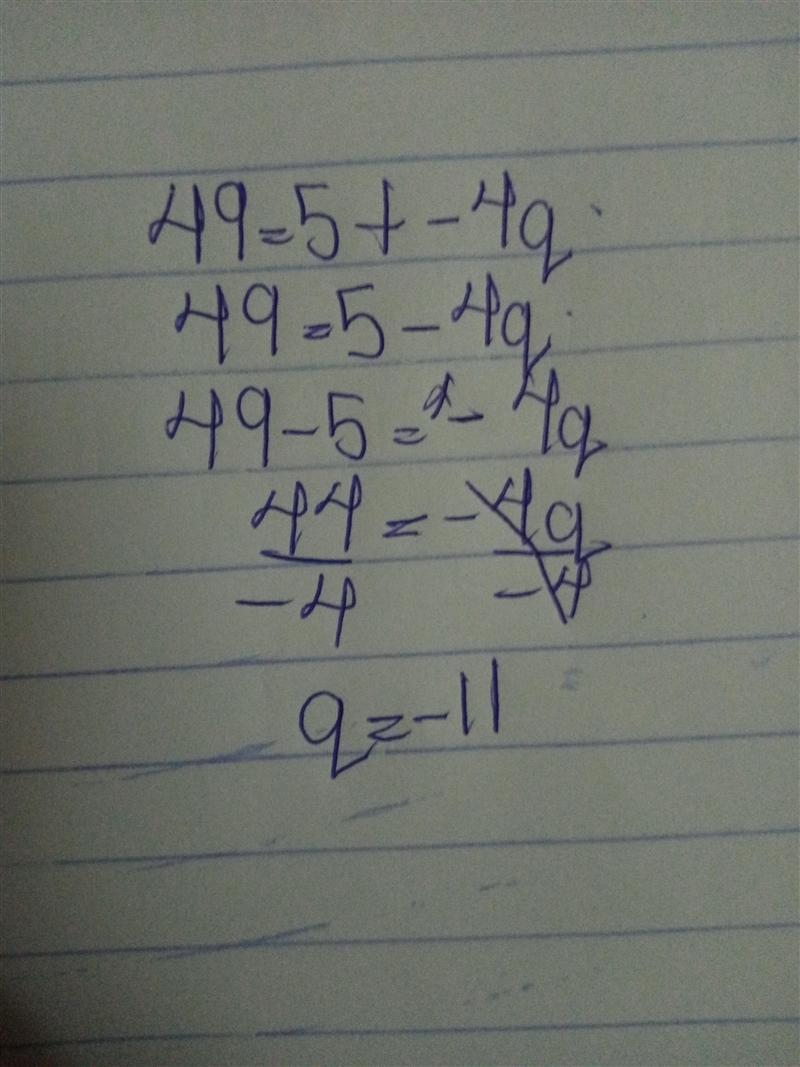 49=5+-4q
49=5-4q
49-5=-4q
44/-4=-4q/-4
q=-11